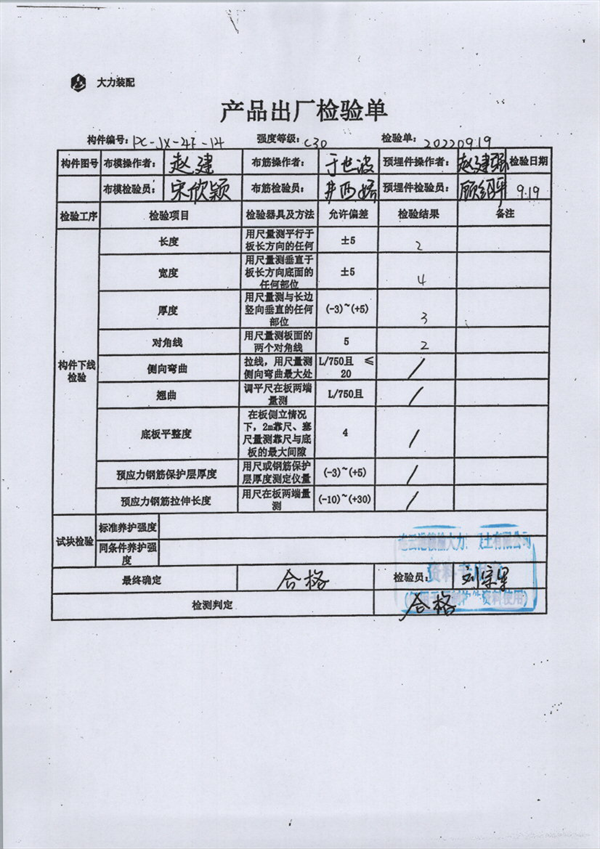 大力装配
产品出厂检验单
构件编号: PC-JX-4F-14 强度等级: C30 检验单: 20220919
构件图号 布模操作者: 赵建 布筋操作者: 于世波 预埋件操作者: 赵建强 检验日期
布模检验员: 宋欣颖 布筋检验员: 预埋件检验员: 9.19
检验工序 检验项目 检验器具及方法 允许偏差 检验结果 备注
构件下线检验
长度 用尺量测平行于板长方向的任何 ±5 2
宽度 用尺量测垂直于板长方向底面的任何部位 ±5 4
厚度 用尺量测与长边竖向垂直的任何部位 (-3)~(+5) 3
对角线 用尺量测板面的两个对角线 5 2
侧向弯曲 拉线，用尺量测侧向弯曲最大处 L/750且 ≤20 /
翘曲 调平尺在板两端量测 L/750且 /
底板平整度 在板侧立情况下，2m靠尺、塞尺量测靠尺与底板的最大间隙 4 /
预应力钢筋保护层厚度 用尺或钢筋保护层厚度测定仪量 (-3)~(+5) /
预应力钢筋拉伸长度 用尺在板两端量测 (-10)~(+30) /
试块检验 标准养护强度
同条件养护强度
最终确定 合格 检验员:
检测判定 合格